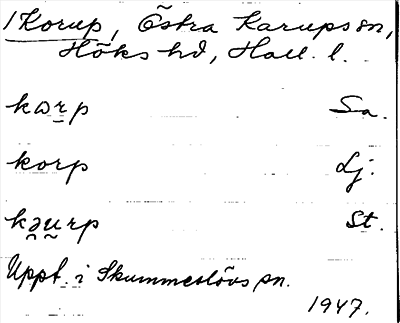 /Korup, Östra Karups sn,
Höks hd, Hall. l.
kɷr̠p Sa.
korp Lj.
kə̯u̯rp St.
Uppt. i Skummeslövs sn.
1947.